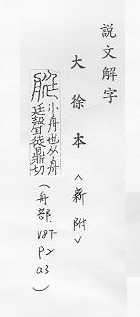 說文解字
大徐本<新附>
艇
小舟也从舟
廷聲徒鼎切
(舟部
V8T
P2
a3)